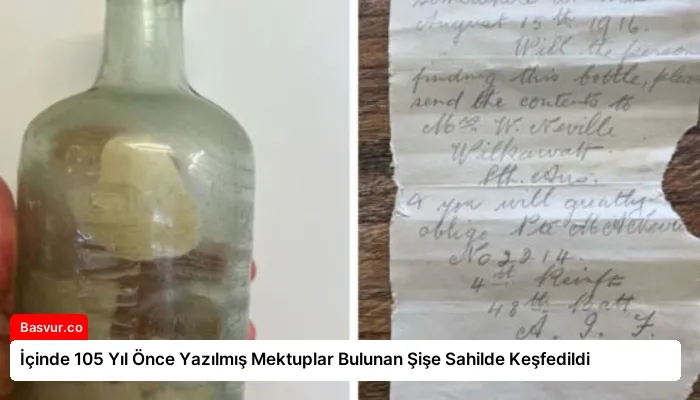 August 15th 1916.
Will the person
finding this bottle, please
send the contents to
Mrs W. Neville
Wilkawatt
Sth. Aus.
& you will greatly
oblige Pte M A Neville
No 2214.
4th Reinft
48th Batt
A. I. F.
Basvur.co
İçinde 105 Yıl Önce Yazılmış Mektuplar Bulunan Şişe Sahilde Keşfedildi